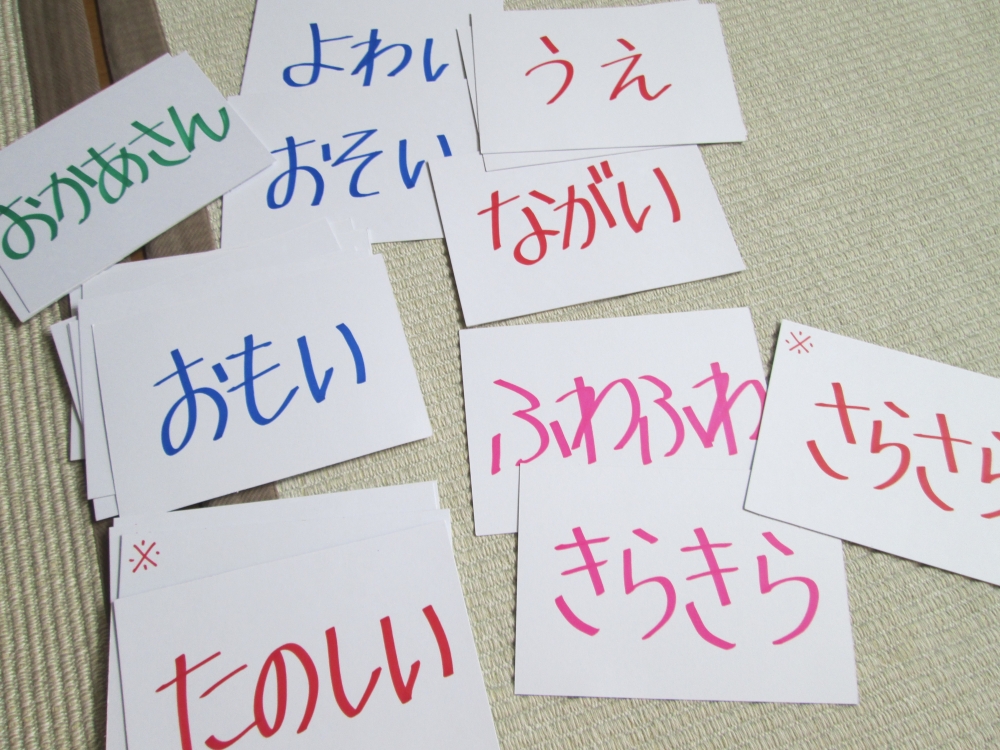 よわい
うえ
おかあさん
おそい
ながい
おもい
ふわふわ
※
さらさら
※
たのしい
きらきら